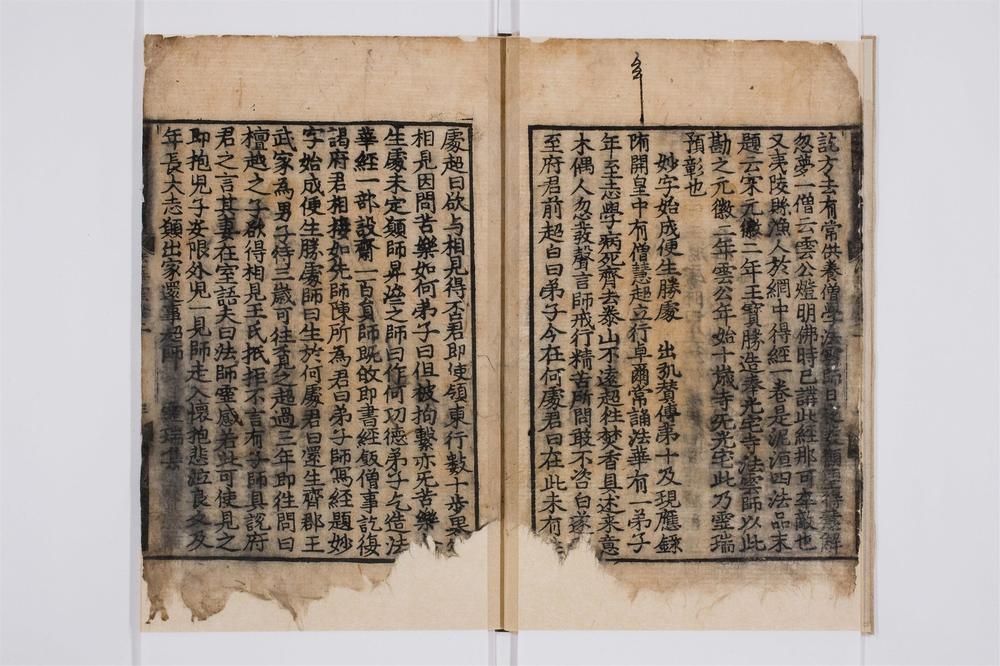 訖方去有常供養僧學法雲師日夜發願得慧解
忽夢一僧云雲公燈明佛時已講此經那可卒敵也
又夷陵縣漁人於網中得經一卷是泥洹四法品末
題云宋元徽二年王寶勝造奉光宅寺法雲師以此
勘之元徽二年雲公年始十歲寺无光宅此乃靈瑞
預彰也
妙字始成便生勝處 出弘賛傳弟十及現應錄
隋開皇中有僧慧超立行卓爾常誦法華有一弟子
年至志學病死齊去泰山不遠超往焚香具述来意
木偶人忽發聲言師戒行精苦所問敢不咨白遂
至府君前超白曰弟子今在何處君曰在此未有
處超曰欲与相見得否君即使領東行數十步果
相見因問苦樂如何弟子曰但被拘繫亦无苦樂
生處未定願師昇濟之師曰作何功德弟子乞造法
華經一部設齋一百員師既敀即書經飯僧事訖復
謁府君相接如先師陳所為君曰弟子師寫經題妙
字始成便生勝處師曰生於何處君曰還生齊郡王
武家為男子待三歲可往賀之超過三年即往問曰
檀越之子欲得相見王氏抵拒不言有子師具說府
君之言其妻在室語夫曰法師靈感若此可使見之
即抱兒子安限外兒一見師走入懷抱悲泣良久及
年長大志願出家還事超師 靈瑞集